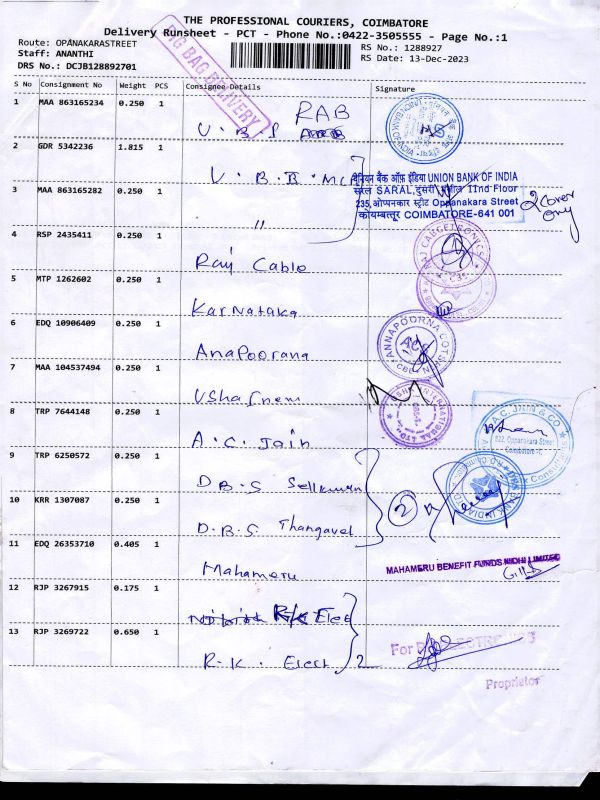 THE PROFESSIONAL COURIERS, COIMBATORE
Delivery Runsheet - PCT - Phone No.:0422-3505555 - Page No.:1
Route: OPANAKARASTREET
Staff: ANANTHI
DRS No.: DCJB128892701
RS No.: 1288927
RS Date: 13-Dec-2023
BIG BAG DELIVERY
S No Consignment No Weight PCS Consignee Details Signature
1 MAA 863165234 0.250 1
RAB
U.B.I
2 GDR 5342236 1.815 1
U.B.I
3 MAA 863165282 0.250 1
"
यूनियन बैंक ऑफ़ इंडिया UNION BANK OF INDIA
सरल SARAL, दूसरी मंज़िल IInd Floor
235, ओप्पनकार स्ट्रीट Oppanakara Street
कोयम्बत्तूर COIMBATORE-641 001
2 Cover
only
4 RSP 2435411 0.250 1
Raj Cable
5 MTP 1262602 0.250 1
Karnataka
6 EDQ 10906409 0.250 1
Anapoorana
ANNAPOORNA COTS
7 MAA 104537494 0.250 1
8 TRP 7644148 0.250 1
A.C. Jain
A.C. JAIN & CO
622, Oppanakara Street
Coimbatore-1
9 TRP 6250572 0.250 1
D.B.S
10 KRR 1307087 0.250 1
D.B.S. Thangavel
2
11 EDQ 26353710 0.405 1
Mahameru
MAHAMERU BENEFIT FUNDS NIDHI LIMITED
12 RJP 3267915 0.175 1
R/K Elect
13 RJP 3269722 0.650 1
R.K. Elect
2
For
Proprietor